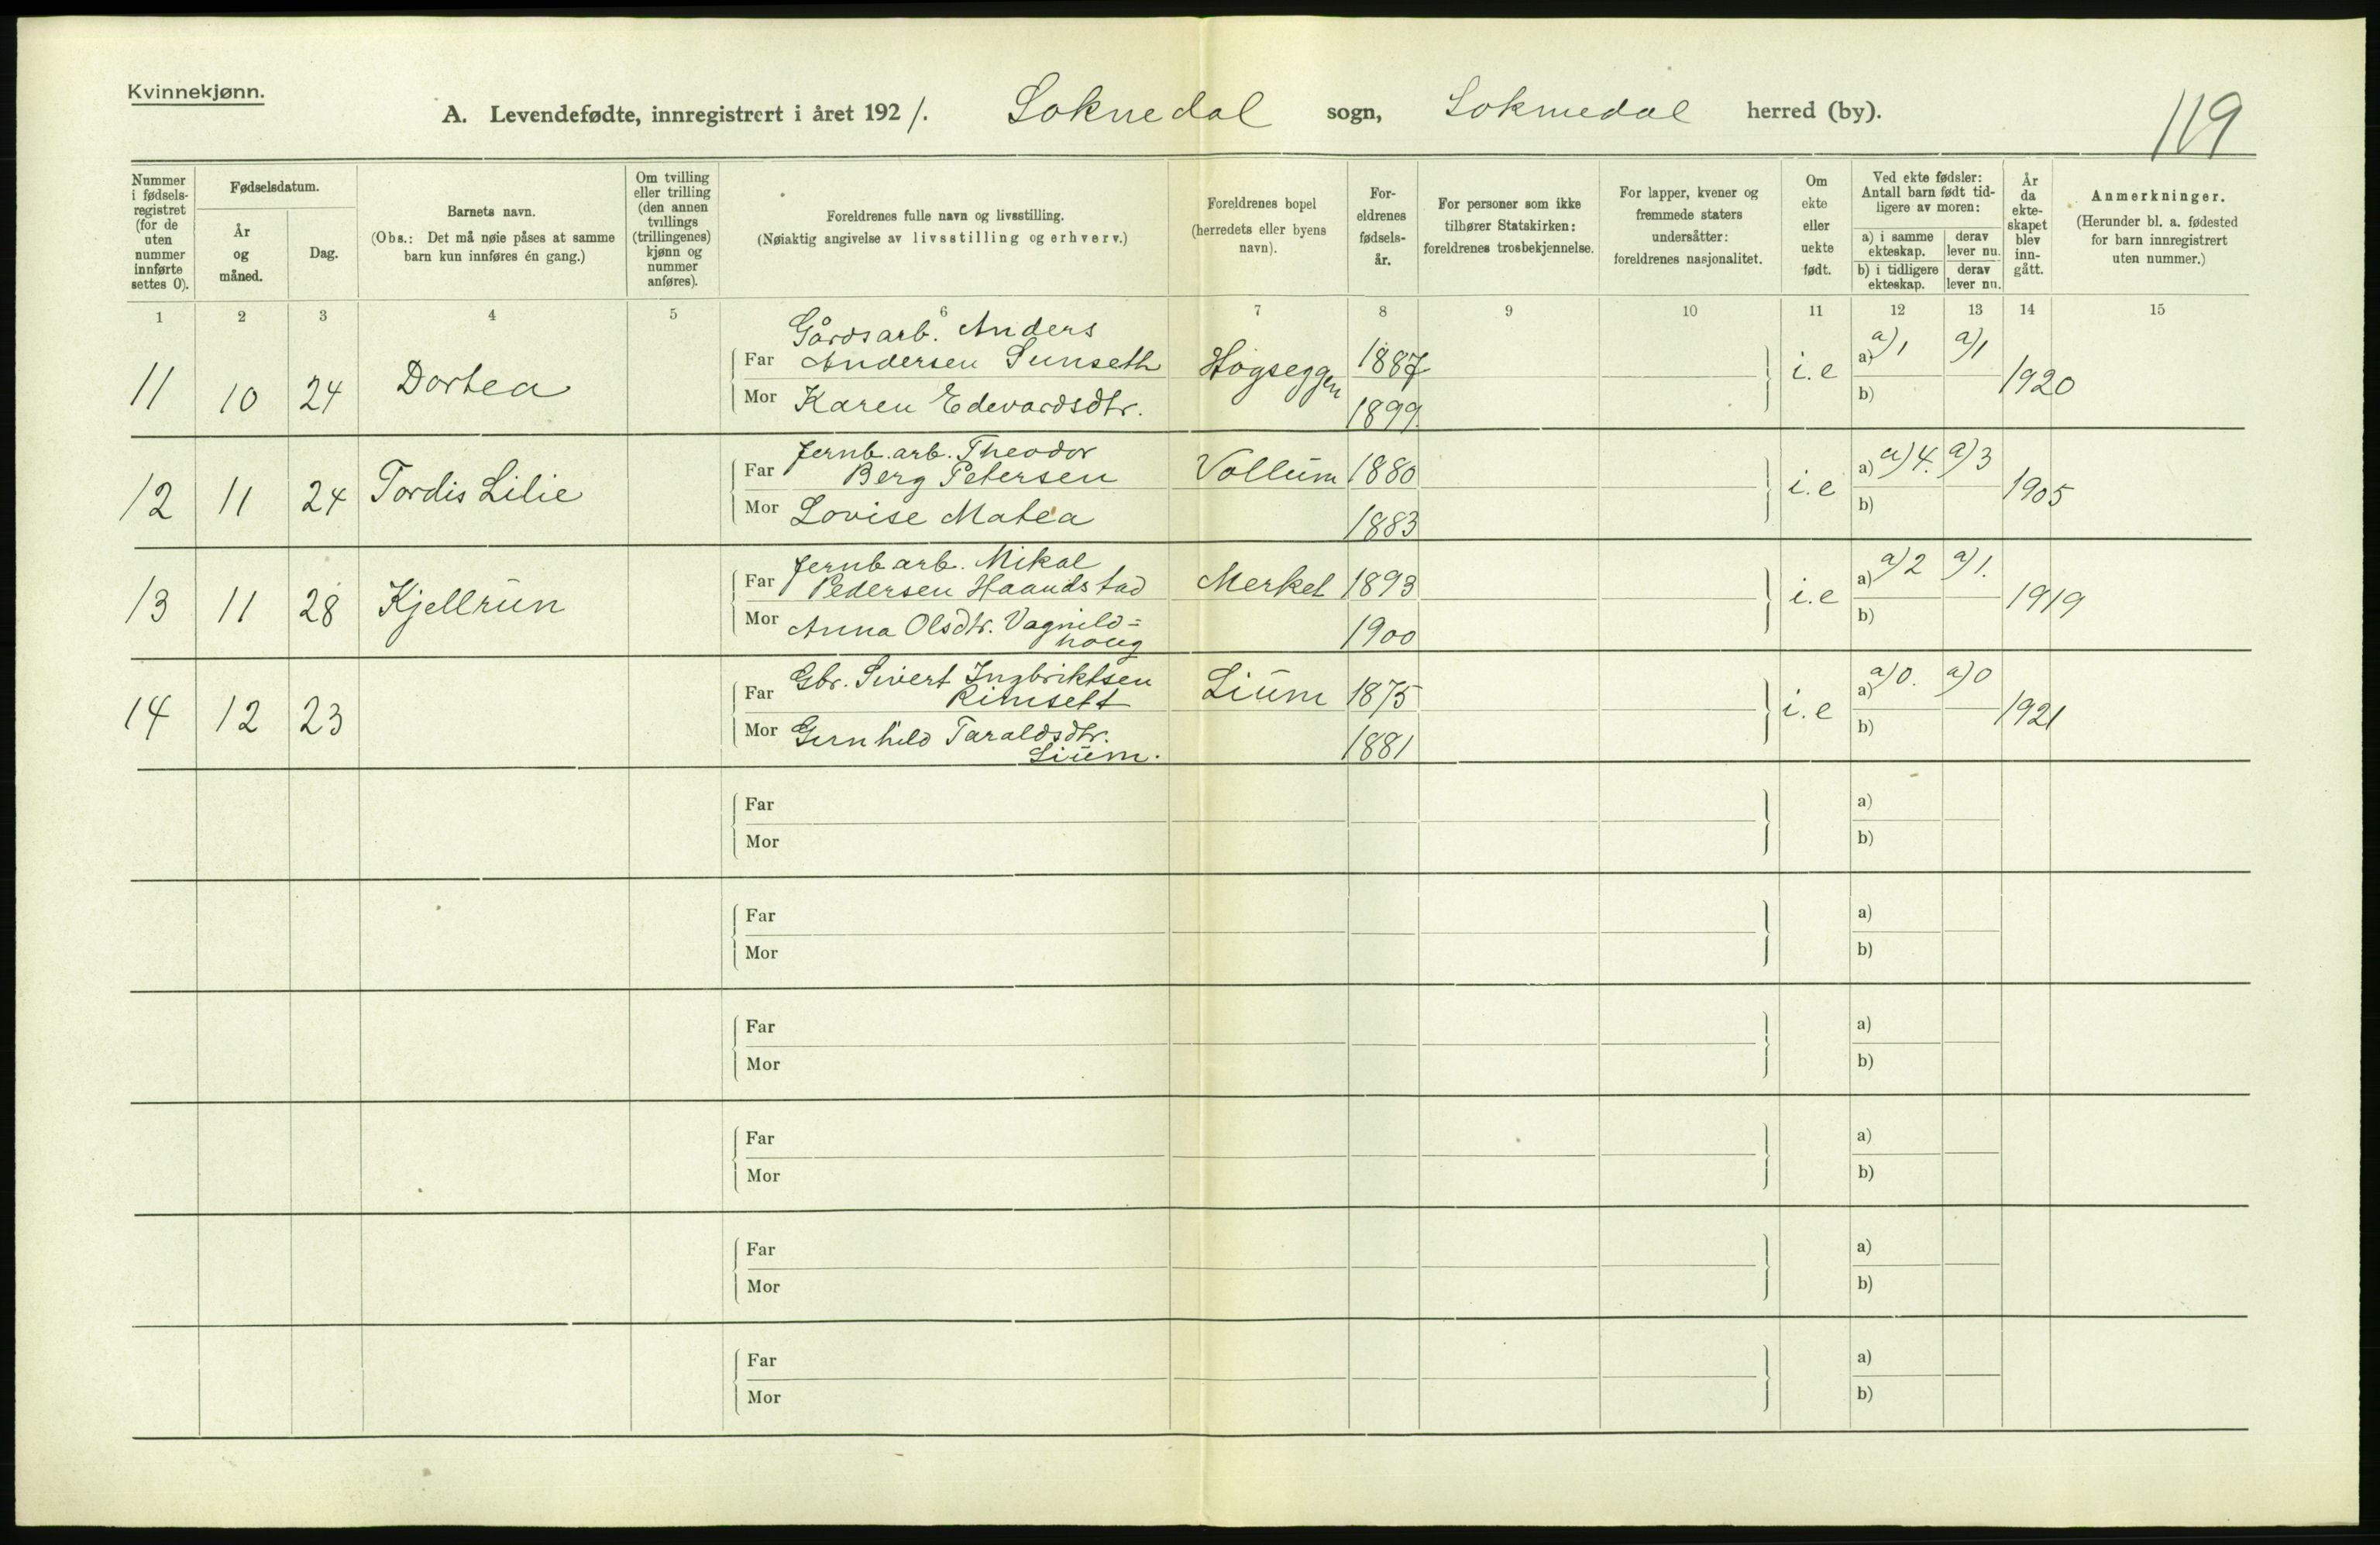 Kvinnekjønn.
A. Levendefødte, innregistrert i året 1921. Soknedal sogn, Soknedal herred (by).
119
Nummer i fødsels-registret (for de uten nummer innførte settes 0).
Fødselsdatum.
År og måned.
Dag.
Barnets navn.
(Obs.: Det må nøie påses at samme barn kun innføres én gang.)
Om tvilling eller trilling (den annen tvillings (trillingenes) kjønn og nummer anføres).
Foreldrenes fulle navn og livsstilling.
(Nøiaktig angivelse av livsstilling og erhverv.)
Foreldrenes bopel (herredets eller byens navn).
For-eldrenes fødsels-år.
For personer som ikke tilhører Statskirken: foreldrenes trosbekjennelse.
For lapper, kvener og fremmede staters undersåtter: foreldrenes nasjonalitet.
Om ekte eller uekte født.
Ved ekte fødsler: Antall barn født tid-ligere av moren:
a) i samme ekteskap.
derav lever nu.
b) i tidligere ekteskap.
derav lever nu.
År da ekte-skapet blev inn-gått.
Anmerkninger.
(Herunder bl. a. fødested for barn innregistrert uten nummer.)
1 2 3 4 5 6 7 8 9 10 11 12 13 14 15
11 10 24 Dortea
Far Gårdsarb. Anders
Andersen Sunseth Høgseggen 1887
Mor Karen Edevardsdtr. 1899
i.e a) a) 1 a) 1 b) 1920
12 11 24 Tordis Lilie
Far Jernb. arb. Theodor
Berg Petersen Vollum 1880
Mor Lovise Matea 1883
i.e a) a) 4. a) 3 b) 1905
13 11 28 Kjellrun
Far Jernb arb. Mikal
Pedersen Haandstad Merket 1893
Mor Anna Olsdtr. Vagnild=
houg 1900
i.e a) a) 2 a) 1. b) 1919
14 12 23
Far Gbr. Sivert Ingbriktsen
Rimsett Lium 1875
Mor Gunhild Taraldsdtr.
Lium. 1881
i.e a) a) 0. a) 0 b) 1921
Far a)
Mor b)
Far a)
Mor b)
Far a)
Mor b)
Far a)
Mor b)
Far a)
Mor b)
Far a)
Mor b)